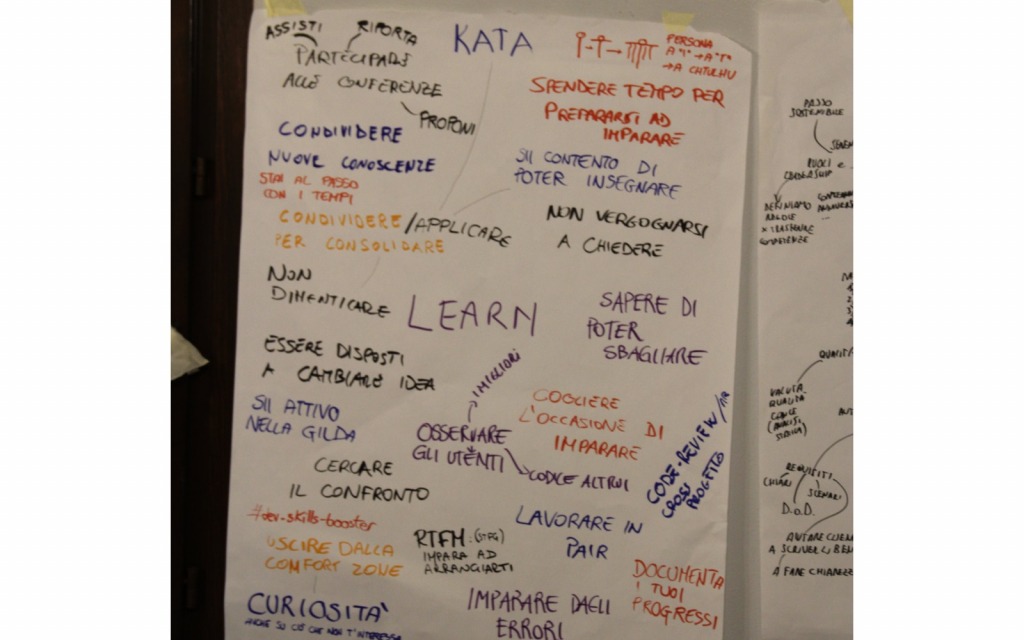 ASSISTI
RIPORTA
PARTECIPARE
ALLE CONFERENZE
PROPONI
KATA
PERSONA
A "I" → A "T"
→ A CHTULHU
SPENDERE TEMPO PER
PREPARARSI AD
IMPARARE
CONDIVIDERE
NUOVE CONOSCENZE
SII CONTENTO DI
POTER INSEGNARE
STAI AL PASSO
CON I TEMPI
CONDIVIDERE/APPLICARE
PER CONSOLIDARE
NON VERGOGNARSI
A CHIEDERE
NON
DIMENTICARE
LEARN
SAPERE DI
POTER
SBAGLIARE
ESSERE DISPOSTI
A CAMBIARE IDEA
I MIGLIORI
SII ATTIVO
NELLA GILDA
OSSERVARE
GLI UTENTI
CODICE ALTRUI
COGLIERE
L'OCCASIONE DI
IMPARARE
CODE-REVIEW/
CROSS
PROGETTO
CERCARE
IL CONFRONTO
#dev-skills-booster
USCIRE DALLA
COMFORT ZONE
RTFM: (STFG)
IMPARA AD
ARRANGIARTI
LAVORARE IN
PAIR
DOCUMENTA
I TUOI
PROGRESSI
CURIOSITÀ
ANCHE SU CIÒ CHE NON T'INTERESSA
IMPARARE DAGLI
ERRORI
PASSO
SOSTENIBILE
RUOLI e
DEFINIAMO
REGOLE
COMPETENZE
QUALITÀ
VALUTA
QUALITÀ
CODICE
(ANALISI
STATICA)
REQUISITI
CHIARI
SCENARI
D.o.D.
AIUTARE CLIEN
A SCRIVERLI BEN
A FARE CHIAREZZ